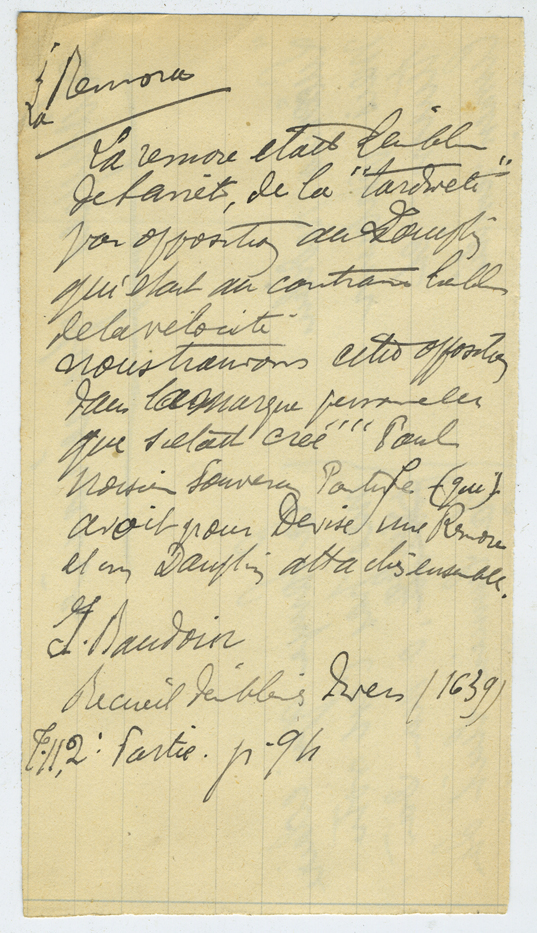 La Remora
La remore etait l'emblème
de l'arrêt, de la "tardiveté"
par opposition au Dauphin
qui etait au contraire l'emblème
de la vélocité
nous trouvons cette opposition
dans la marque personnelle
que s'etait créé "" Paul
Souverain Pontife (qui)
avoit pour Devise une Remore
et un Dauphin attachés ensemble.
J. Baudoin
Recueil d'emblèmes Divers (1639)
T. II, 2e Partie. p. 94